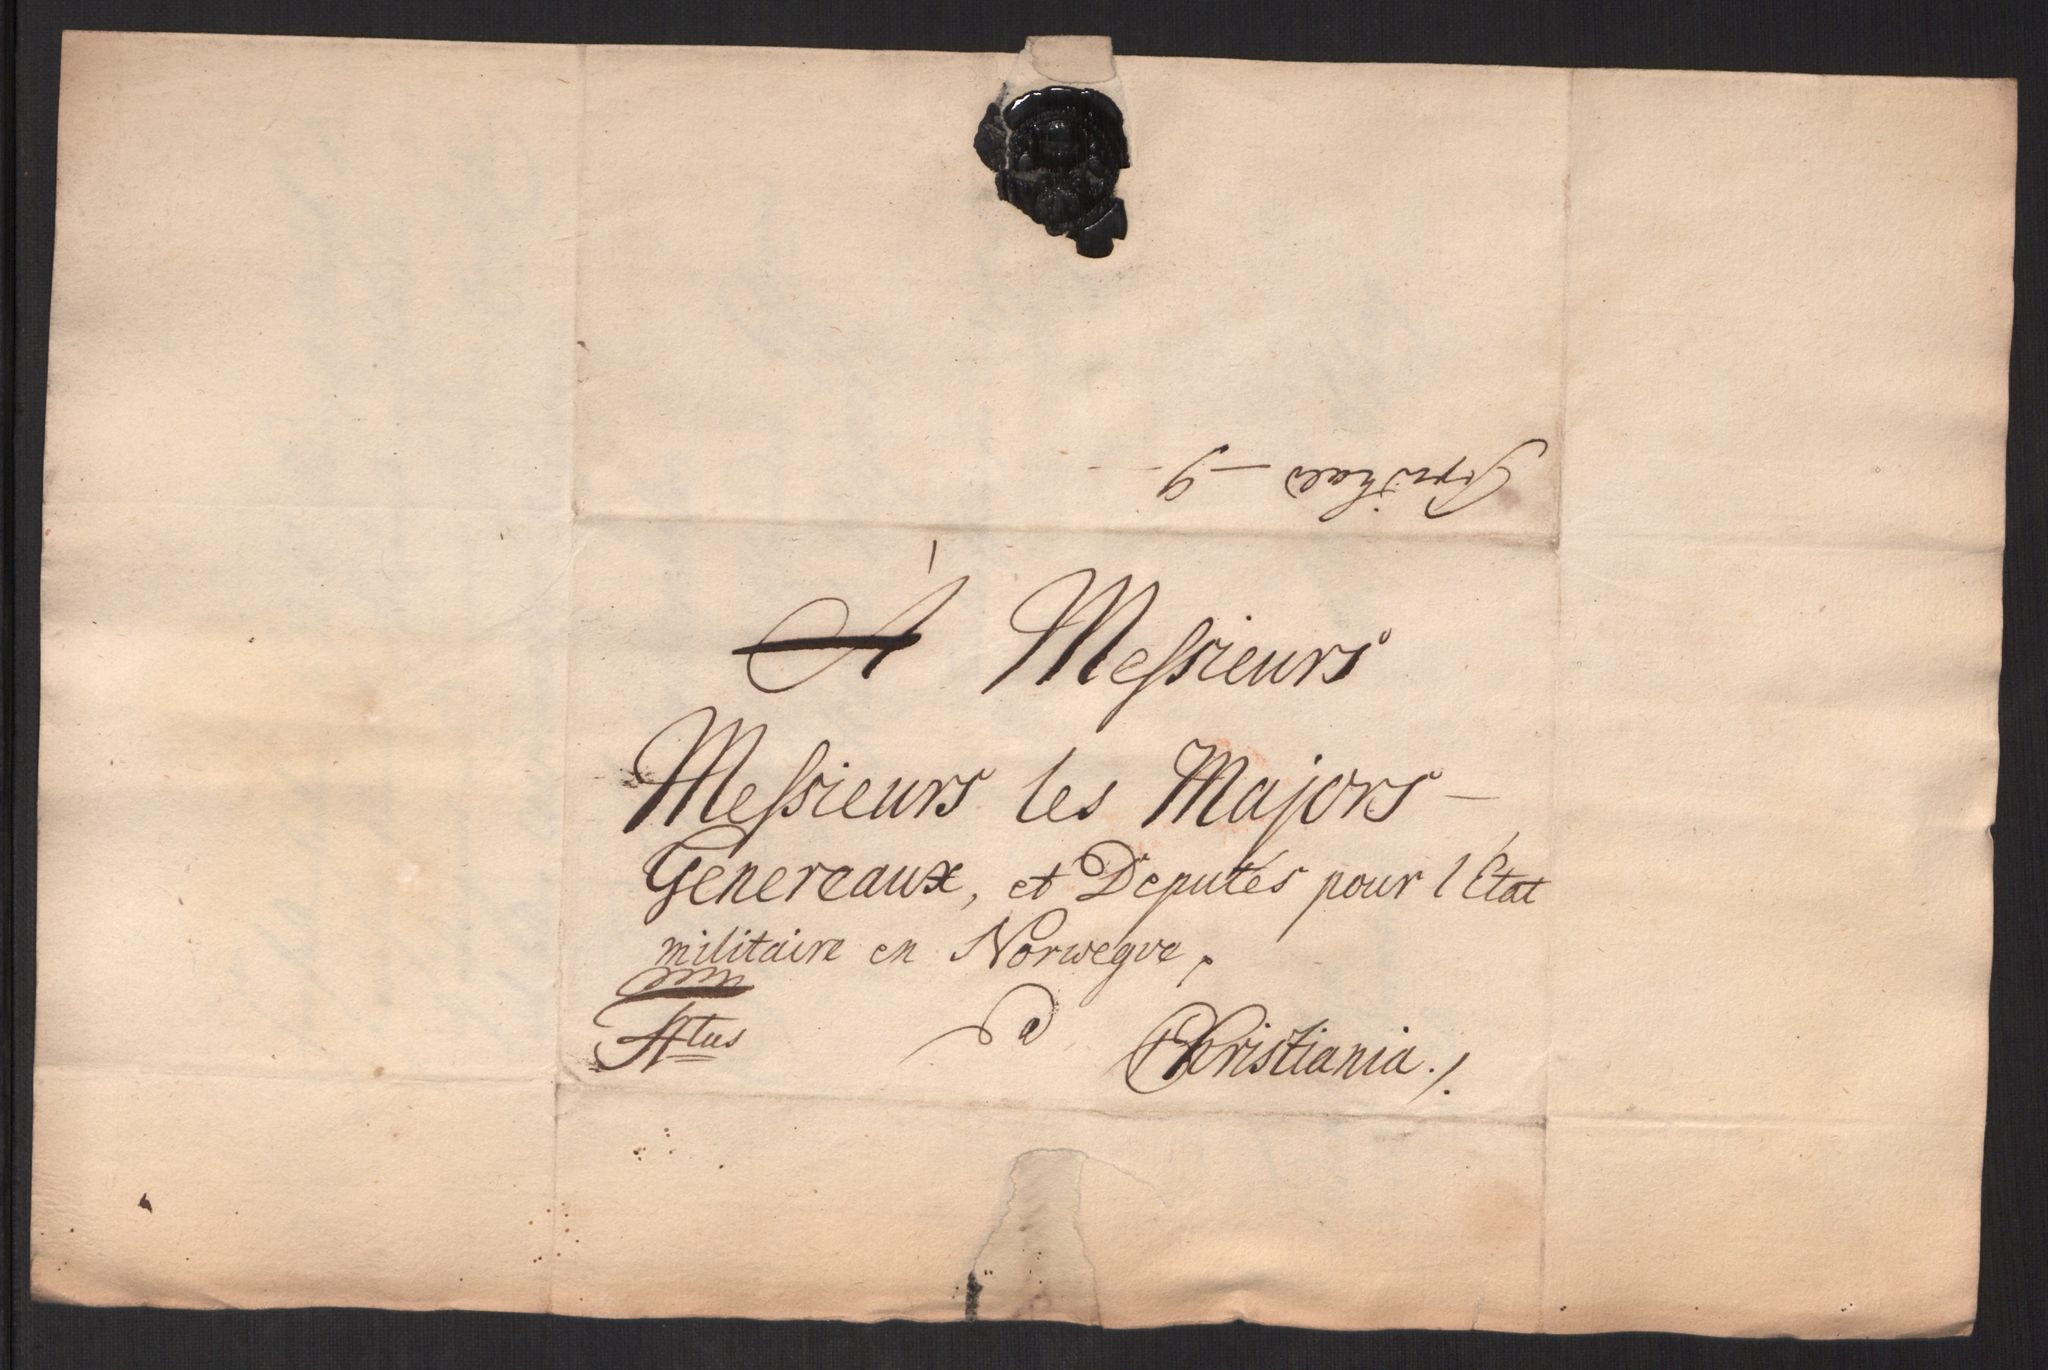 À Messieurs
Messieurs les Majors —
Genereaux, et Deputés pour l'Etat
militaire en Norwegue,
à Christiania ./.